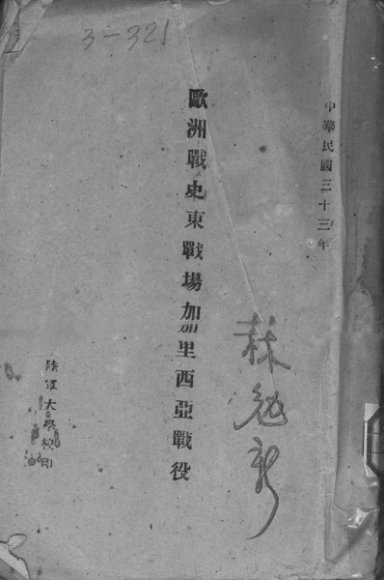 3-321
中華民國三十三年
歐洲戰史東戰場加里西亞戰役
陸軍大學校印